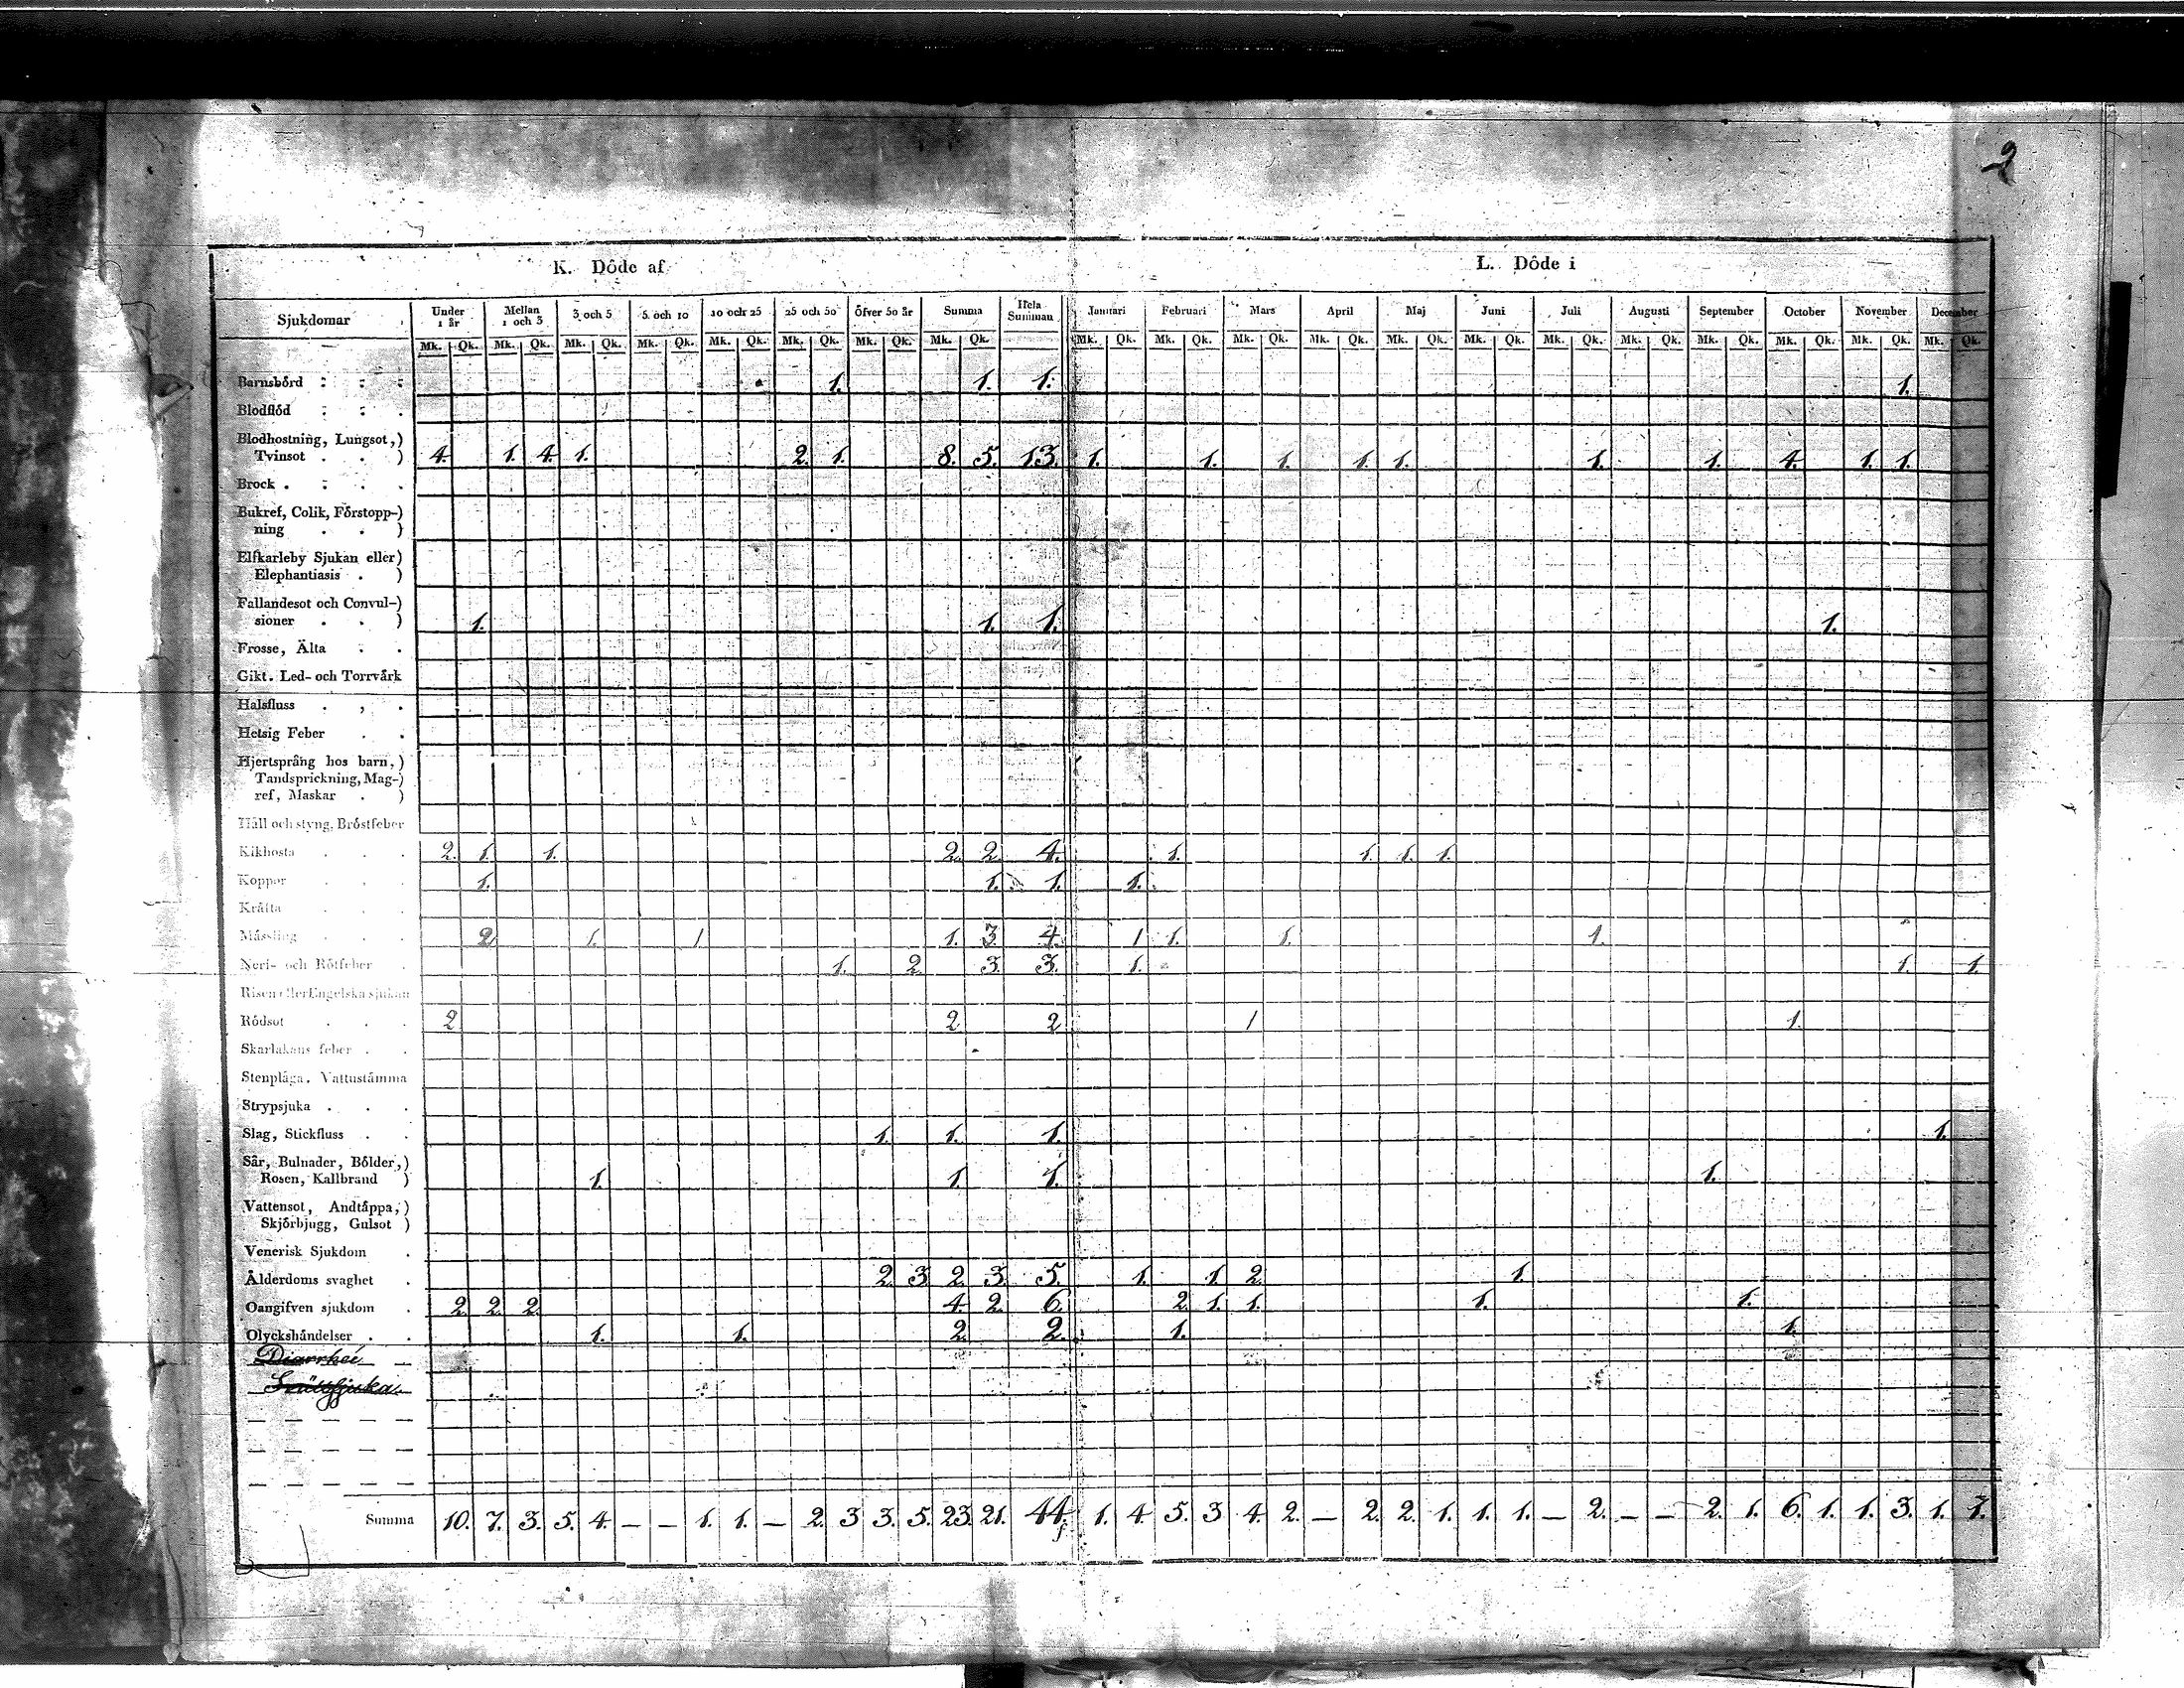 2
K. Dôde af L. Dôde i
Sjukdomar Under 1 år Mellan 1 och 3 3 och 5 5 och 10 10 och 25 25 och 50 Öfver 50 år Summa Hela Summan Januari Februari Mars April Maj Juni Juli Augusti September October November December
Mk. Qk. Mk. Qk. Mk. Qk. Mk. Qk. Mk. Qk. Mk. Qk. Mk. Qk. Mk. Qk. Mk. Qk. Mk. Qk. Mk. Qk. Mk. Qk. Mk. Qk. Mk. Qk. Mk. Qk. Mk. Qk. Mk. Qk. Mk. Qk. Mk. Qk. Mk. Qk.
Barnsbörd 1. 1. 1. 1.
Blodflöd
Blodhostning, Lungsot,)
Tvinsot . . ) 4. 1. 4. 1. 2. 1. 8. 5. 13. 1. 1. 1. 1. 1. 1. 1. 4. 1. 1.
Brock . . . .
Bukref, Colik, Förstopp-)
ning . . )
Elfkarleby Sjukan eller)
Elephantiasis . )
Fallandesot och Convul-)
sioner . . ) 1. 1. 1. 1.
Frosse, Älta . .
Gikt. Led- och Torrvärk
Halsfluss . , .
Hetsig Feber . .
Hjertsprång hos barn,)
Tandsprickning, Mag-)
ref, Maskar . )
Håll och styng, Bröstfeber
Kikhosta . . . 2. 1. 1. 2. 2. 4. 1. 1. 1. 1.
Koppor . . . 1. 1. 1. 1.
Kräfta . . .
Mässling . . . 2. 1. 1 1. 3. 4. 1 1. 1. 1.
Nerf- och Rötfeber . 1. 2. 3. 3. 1. 1. 1.
Risen eller Engelska sjukan
Rödsot . . . 2 2 2 1 1.
Skarlakans feber . .
Stenplåga. Vattustämma
Strypsjuka . . .
Slag, Stickfluss . . 1. 1. 1. 1.
Sår, Bulnader, Bölder,)
Rosen, Kallbrand ) 1. 1. 1. 1.
Vattensot, Andtäppa,)
Skjörbjugg, Gulsot )
Venerisk Sjukdom .
Ålderdoms svaghet . 2. 3. 2. 3. 5. 1. 1. 2. 1.
Oangifven sjukdom . 2. 2. 2. 4. 2. 6. 2. 1. 1. 1. 1.
Olyckshändelser . . 1. 1. 2. 2. 1. 1.
Diarrhei
Summa 10. 7. 3. 5. 4. — — 1. 1. — 2. 3 3. 5. 23. 21. 44. 1. 4. 5. 3 4. 2. — 2. 2. 1. 1. 1. — 2. — — 2. 1. 6. 1. 1. 3. 1. 1.